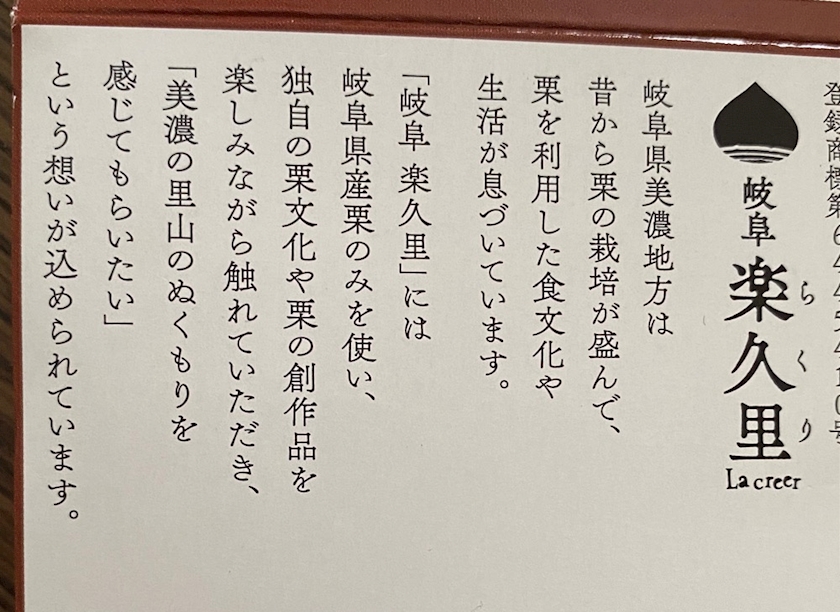 登録商標第6445410号
岐阜
楽久里
らくり
La creer
岐阜県美濃地方は
昔から栗の栽培が盛んで、
栗を利用した食文化や
生活が息づいています。
「岐阜 楽久里」には
岐阜県産栗のみを使い、
独自の栗文化や栗の創作品を
楽しみながら触れていただき、
「美濃の里山のぬくもりを
感じてもらいたい」
という想いが込められています。